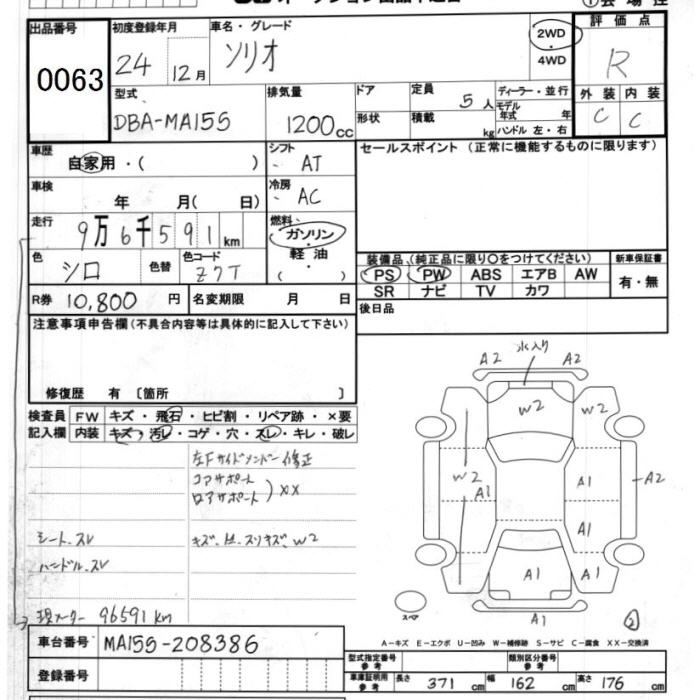 出品番号
0063
初度登録年月
24 12月
車名・グレード
ソリオ
2WD
・
4WD
評価点
R
型式
DBA-MA15S
排気量
1200cc
ドア
形状
定員
5人
積載
kg
ディーラー・並行
モデル
年式 年
ハンドル 左・右
外装 内装
C C
車歴
自家用・( )
シフト
AT
セールスポイント (正常に機能するものに限ります)
車検
年 月( 日)
冷房
AC
走行
9万6千591km
燃料
ガソリン
・
軽油
・
( )
色
シロ
色替
色コード
Z7T
装備品(純正品に限り〇をつけてください)
新車保証書
PS PW ABS エアB AW
有・無
SR ナビ TV カワ
R券 10,800 円
名変期限 月 日
後日品
注意事項申告欄(不具合内容等は具体的に記入して下さい)
修復歴 有 〔箇所 〕
検査員
記入欄
FW キズ・飛石・ヒビ割・リペア跡・×要
内装 キズ・汚レ・コゲ・穴・スレ・キレ・破レ
左Fサイドメンバー修正
コアサポート
ロアサポート ) XX
シート.スレ
ハンドル.スレ
W2
現メーター 96591km
水入り
A2 A2
W2 W2
W2
A1 A1 A2
A1
A1 A1
A1
スペア
2
車台番号 MA15S-208386
登録番号
A－キズ E－エクボ U－凹み W－補修跡 S－サビ C－腐食 XX－交換済
型式指定番号
参考
類別区分番号
参考
車庫証明用
参考
長さ 371 cm 幅 162 cm 高さ 176 cm